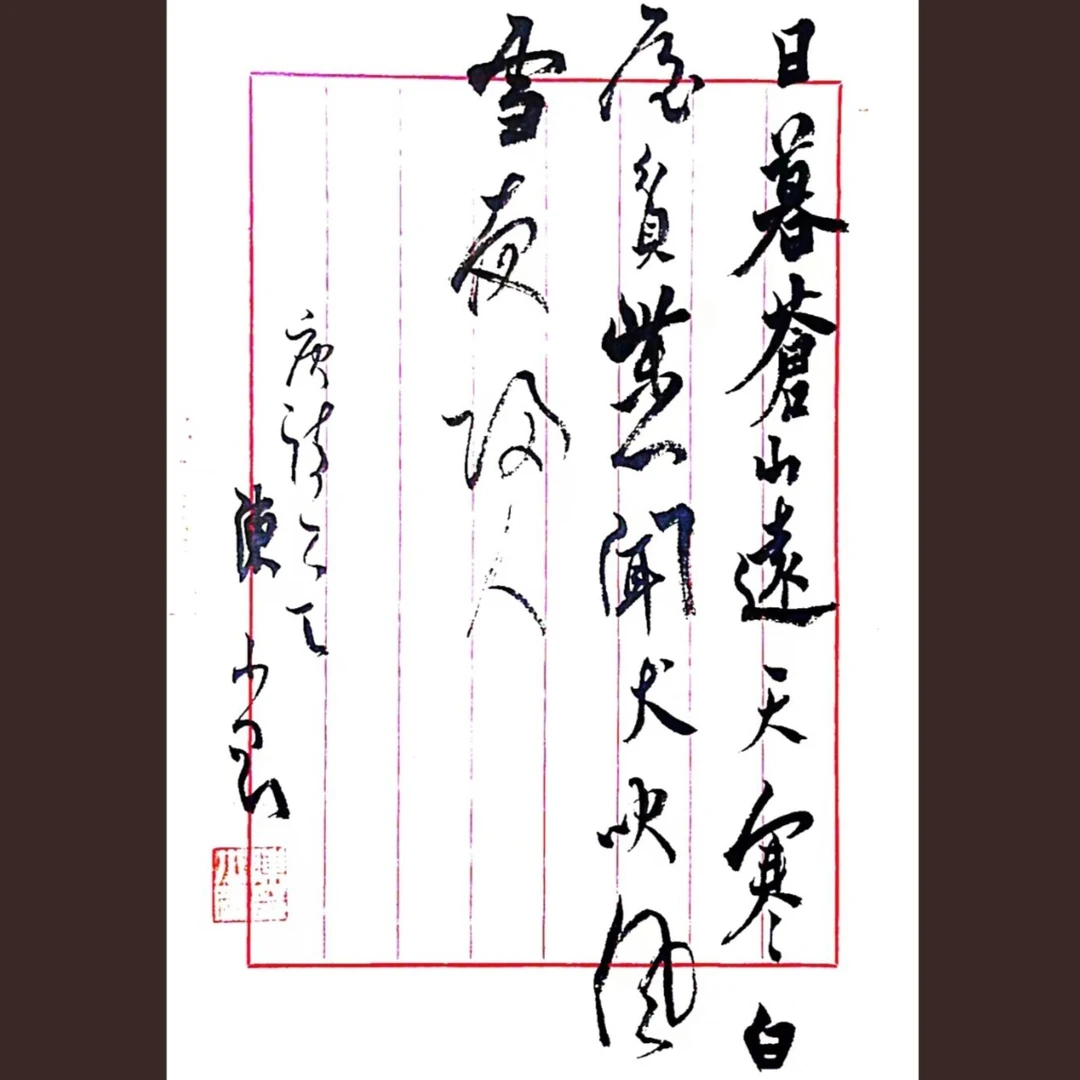 日暮蒼山遠天寒白
屋貧柴門聞犬吠風
雪夜歸人
唐詩
陳小